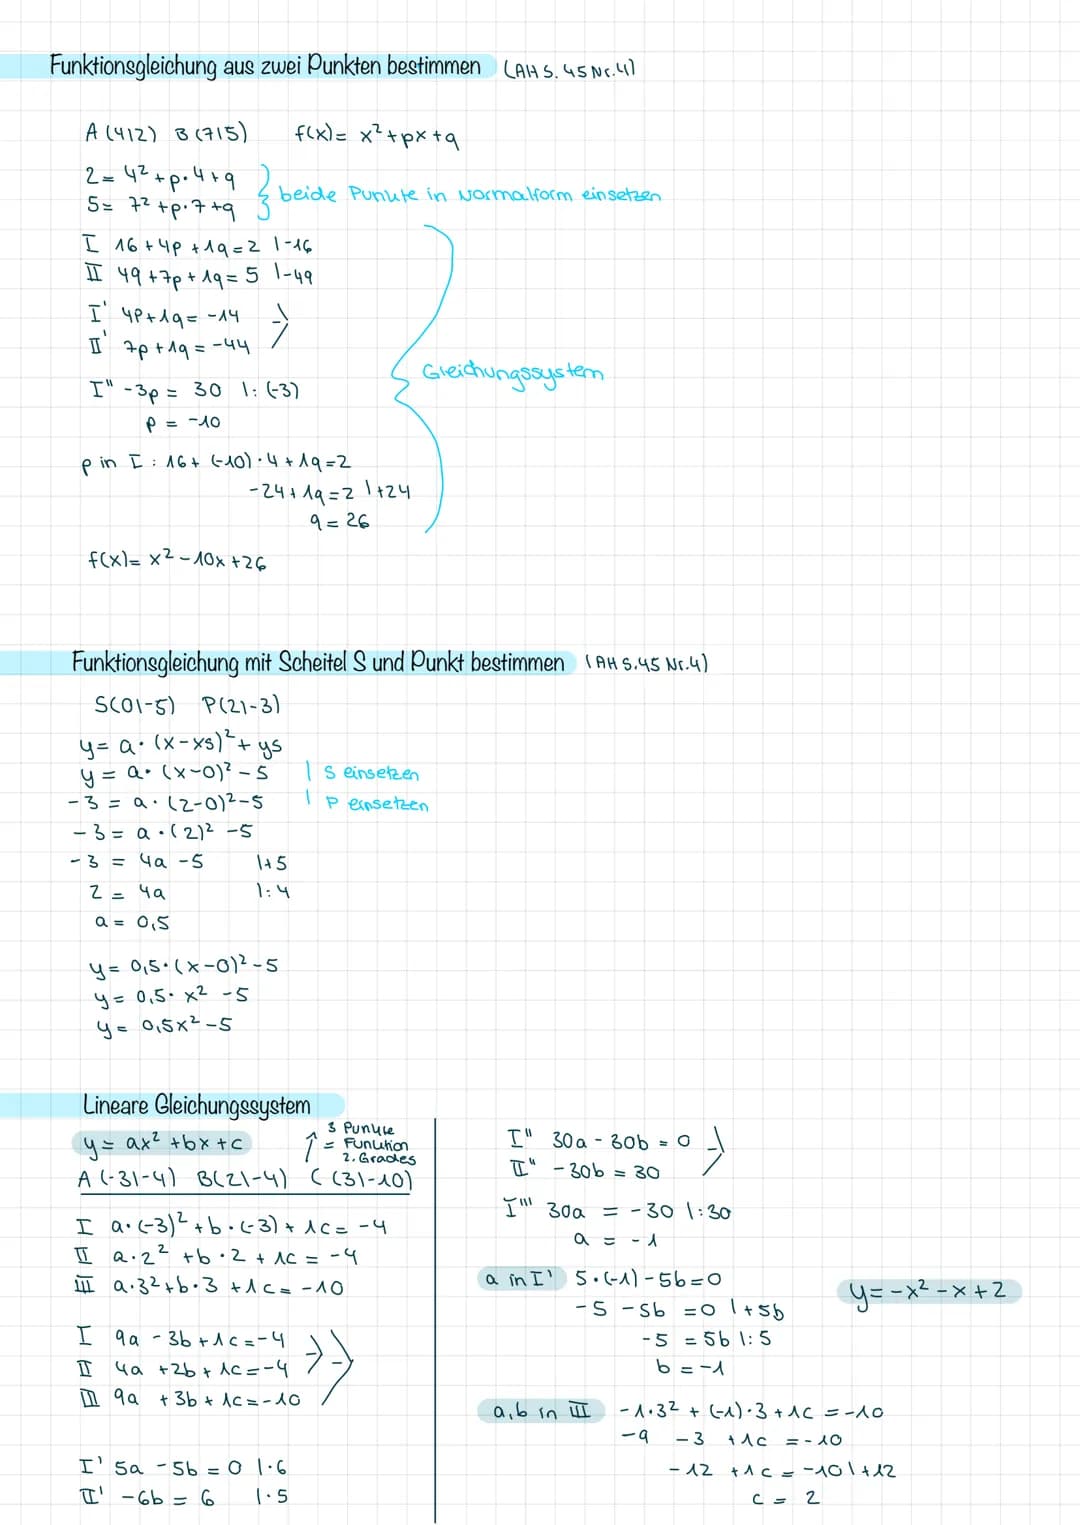 Funktionsgleichung aus zwei Punkten bestimmen (AH S. 45 Nr. 4)
A (4|2) B (7|5) f(x) = x² + px + q
2 = 4² + p·4 + q
5 = 7² + p·7 + q
beide Punkte in Normalform einsetzen
I 16 + 4p + 1q = 2 |-16
II 49 + 7p + 1q = 5 |-49
I' 4p + 1q = -14
II' 7p + 1q = -44
-
I" -3p = 30 |: (-3)
p = -10
Gleichungssystem
p in I : 16 + (-10) · 4 + 1q = 2
-24 + 1q = 2 |+24
q = 26
f(x) = x² - 10x + 26
Funktionsgleichung mit Scheitel S und Punkt bestimmen (AH S. 45 Nr. 4)
S(0|-5) P(2|-3)
y = a · (x - xs)² + ys
y = a · (x - 0)² - 5 | S einsetzen
-3 = a · (2 - 0)² - 5 | P einsetzen
-3 = a · (2)² - 5
-3 = 4a - 5 |+5
2 = 4a |: 4
a = 0,5
y = 0,5 · (x - 0)² - 5
y = 0,5 · x² - 5
y = 0,5x² - 5
Lineare Gleichungssystem
y = ax² + bx + c
↑ 3 Punkte
= Funktion
2. Grades
A (-3|-4) B(2|-4) C (3|-10)
I a · (-3)² + b · (-3) + 1c = -4
II a · 2² + b · 2 + 1c = -4
III a · 3² + b · 3 + 1c = -10
I 9a - 3b + 1c = -4
II 4a + 2b + 1c = -4
III 9a + 3b + 1c = -10
- -
I' 5a - 5b = 0 |·6
II' -6b = 6 |·5
I" 30a - 30b = 0
II" -30b = 30
-
I''' 30a = -30 |: 30
a = -1
a in I' 5 · (-1) - 5b = 0
-5 - 5b = 0 |+5b
-5 = 5b |: 5
b = -1
y = -x² - x + 2
a,b in III -1 · 3² + (-1) · 3 + 1c = -10
-9 - 3 + 1c = -10
-12 + 1c = -10 |+12
c = 2